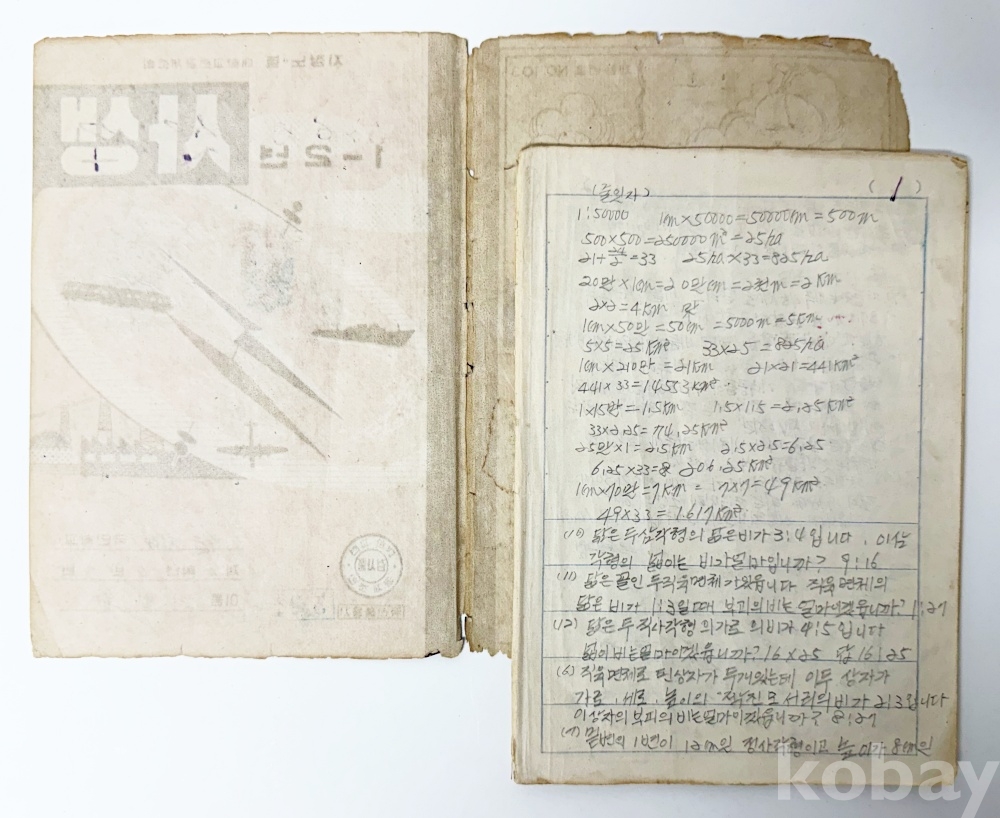 사생
1-2년
(줄잇자)
(1)
1:50000 1cm×50000=50000cm=500m
500×500=250000m²=25ha
21+24/2=33 25ha×33=825ha
20만×1cm=20만cm=2천m=2Km
2×2=4Km
1cm×50만=50cm=5000m=5Km
5×5=25Km² 33×25=825ha
1cm×210만=21Km 21×21=441Km²
441×33=14553Km²
1×15만=1.5Km 1.5×1.5=2.25Km²
33×2.25=74.25Km²
25만×1=2.5Km 2.5×2.5=6.25
6.25×33=8 206.25Km²
1cm×70만=7Km= 7×7=49Km²
49×33=1617Km²
(10) 닮은 두삼각형의 닮은비가 3:4입니다. 이삼
각형의 넓이는 비가얼마입니까? 9:16
(11) 닮은 꼴인 두직육면체가있읍니다 직육면체의
닮은 비가 1:3일때 부피의비는 얼마이겠읍니까? 1:27
(12) 닮은 두 직사각형의가로의비가 4:5입니다
넓이비는얼마이겠읍니까? 16×25 답 16:25
(6) 직육면체로 된상자가 두개있는데 이두 상자가
가로, 세로, 높이의 모서리의비가 2:3입니다
이상자의 부피의비는얼마이겠읍니까? 8:27
(7) 밑변의 1변이 12cm인 정사각형이고 높이가 8cm인
kobay